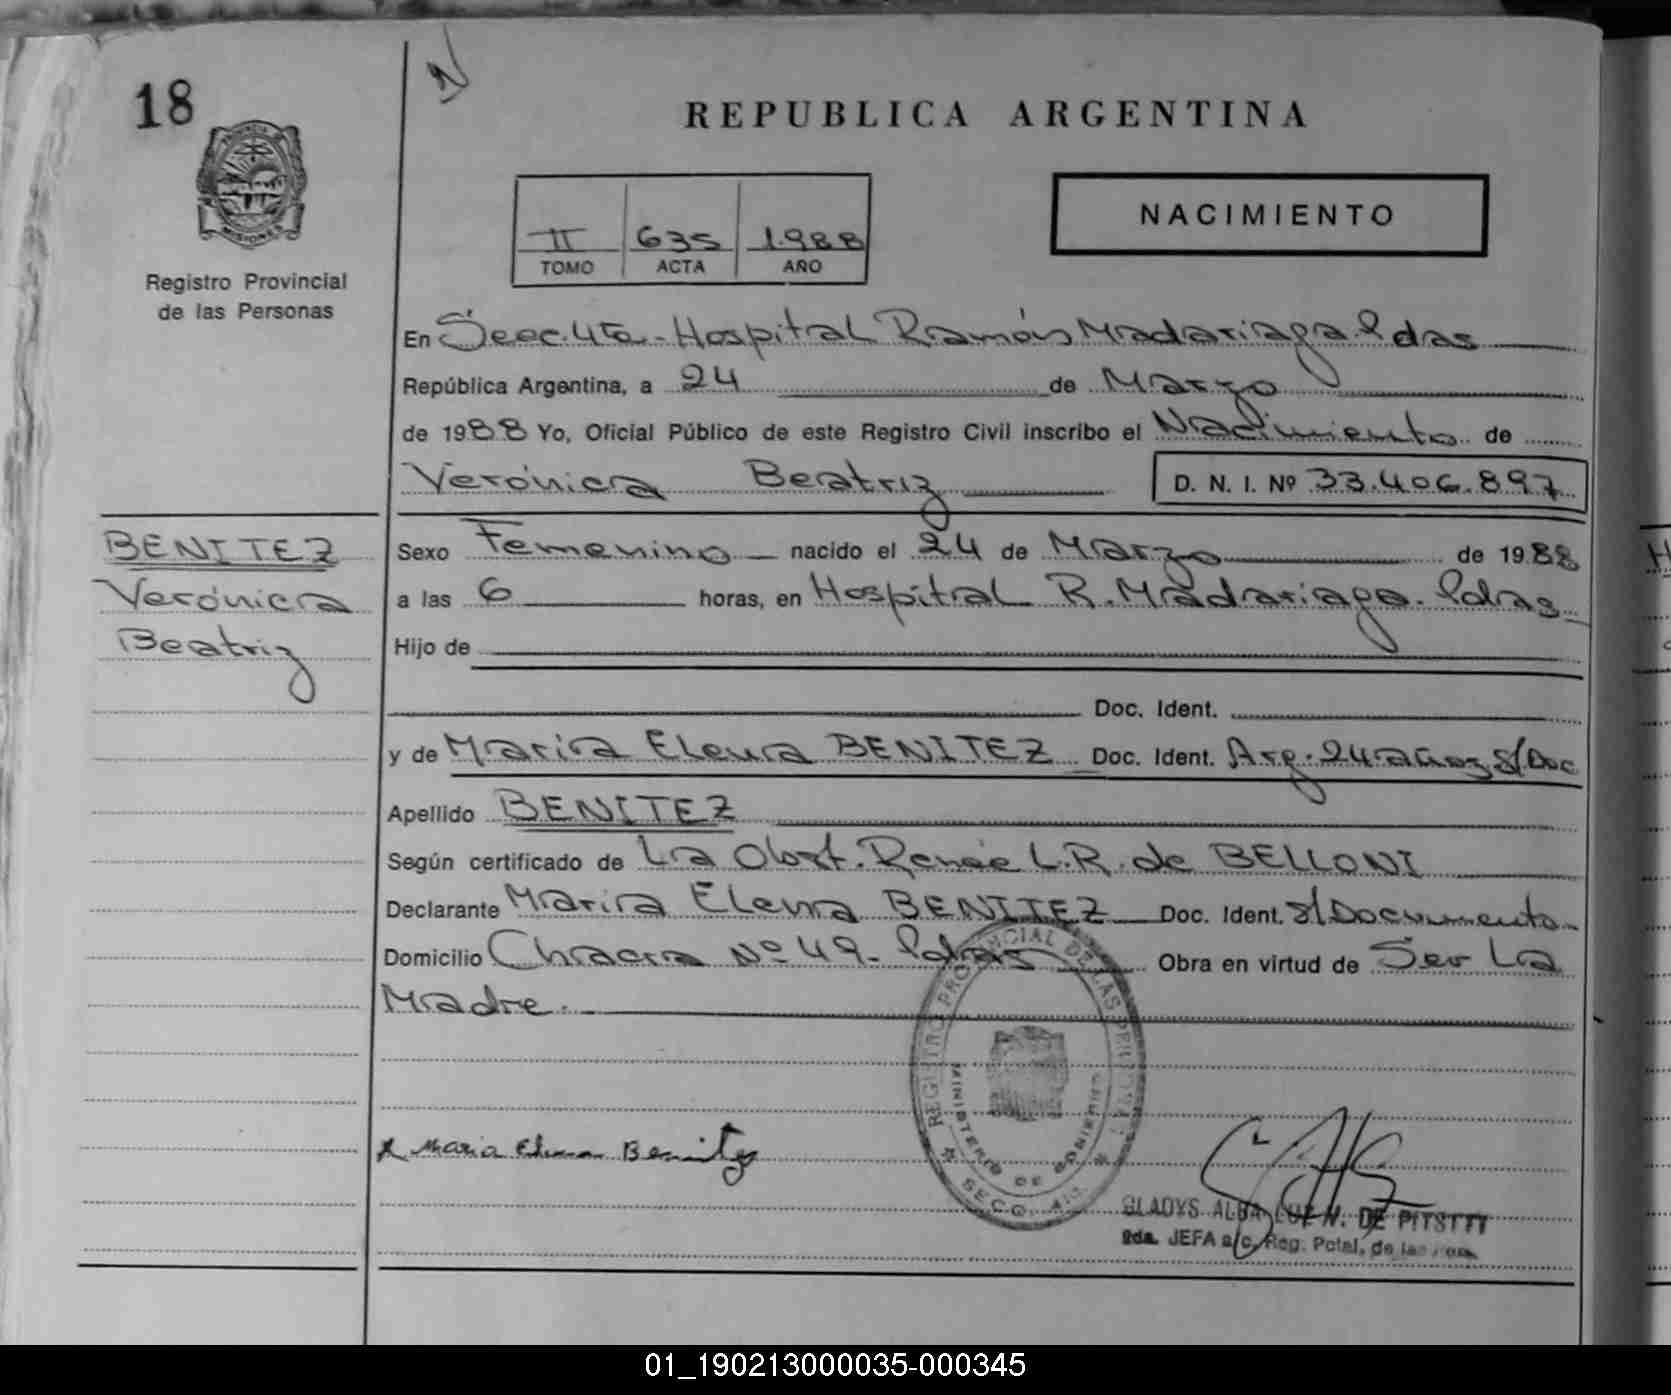 18
N
REPUBLICA ARGENTINA
PROVINCIA DE
MISIONES
Registro Provincial
de las Personas
II 635 1.988
TOMO ACTA AÑO
NACIMIENTO
En Secc.4ta-Hospital Ramón Madariaga.Pdas
República Argentina, a 24 de Marzo
de 1988 Yo, Oficial Público de este Registro Civil inscribo el Nacimiento de
Verónica Beatriz D. N. I. Nº 33.406.897
BENITEZ
Verónica
Beatriz
Sexo Femenino nacido el 24 de Marzo de 1988
a las 6 horas, en Hospital R. Madariaga. Pdas
Hijo de
Doc. Ident.
y de Maria Elena BENITEZ Doc. Ident. Arg. 24 años S/Doc
Apellido BENITEZ
Según certificado de La Obst. Renée L.R. de BELLONI
Declarante Maria Elena BENITEZ Doc. Ident. S/Documento
Domicilio Chacra Nº 49- Pdas Obra en virtud de Ser La
Madre.
REGISTRO PROVINCIAL DE LAS PERSONAS
MINISTERIO DE GOBIERNO
SECC. 4ta
Maria Elena Benitez
GLADYS ALBA DE
2da. JEFA a/c. Reg. Pcial. de las
01_190213000035-000345